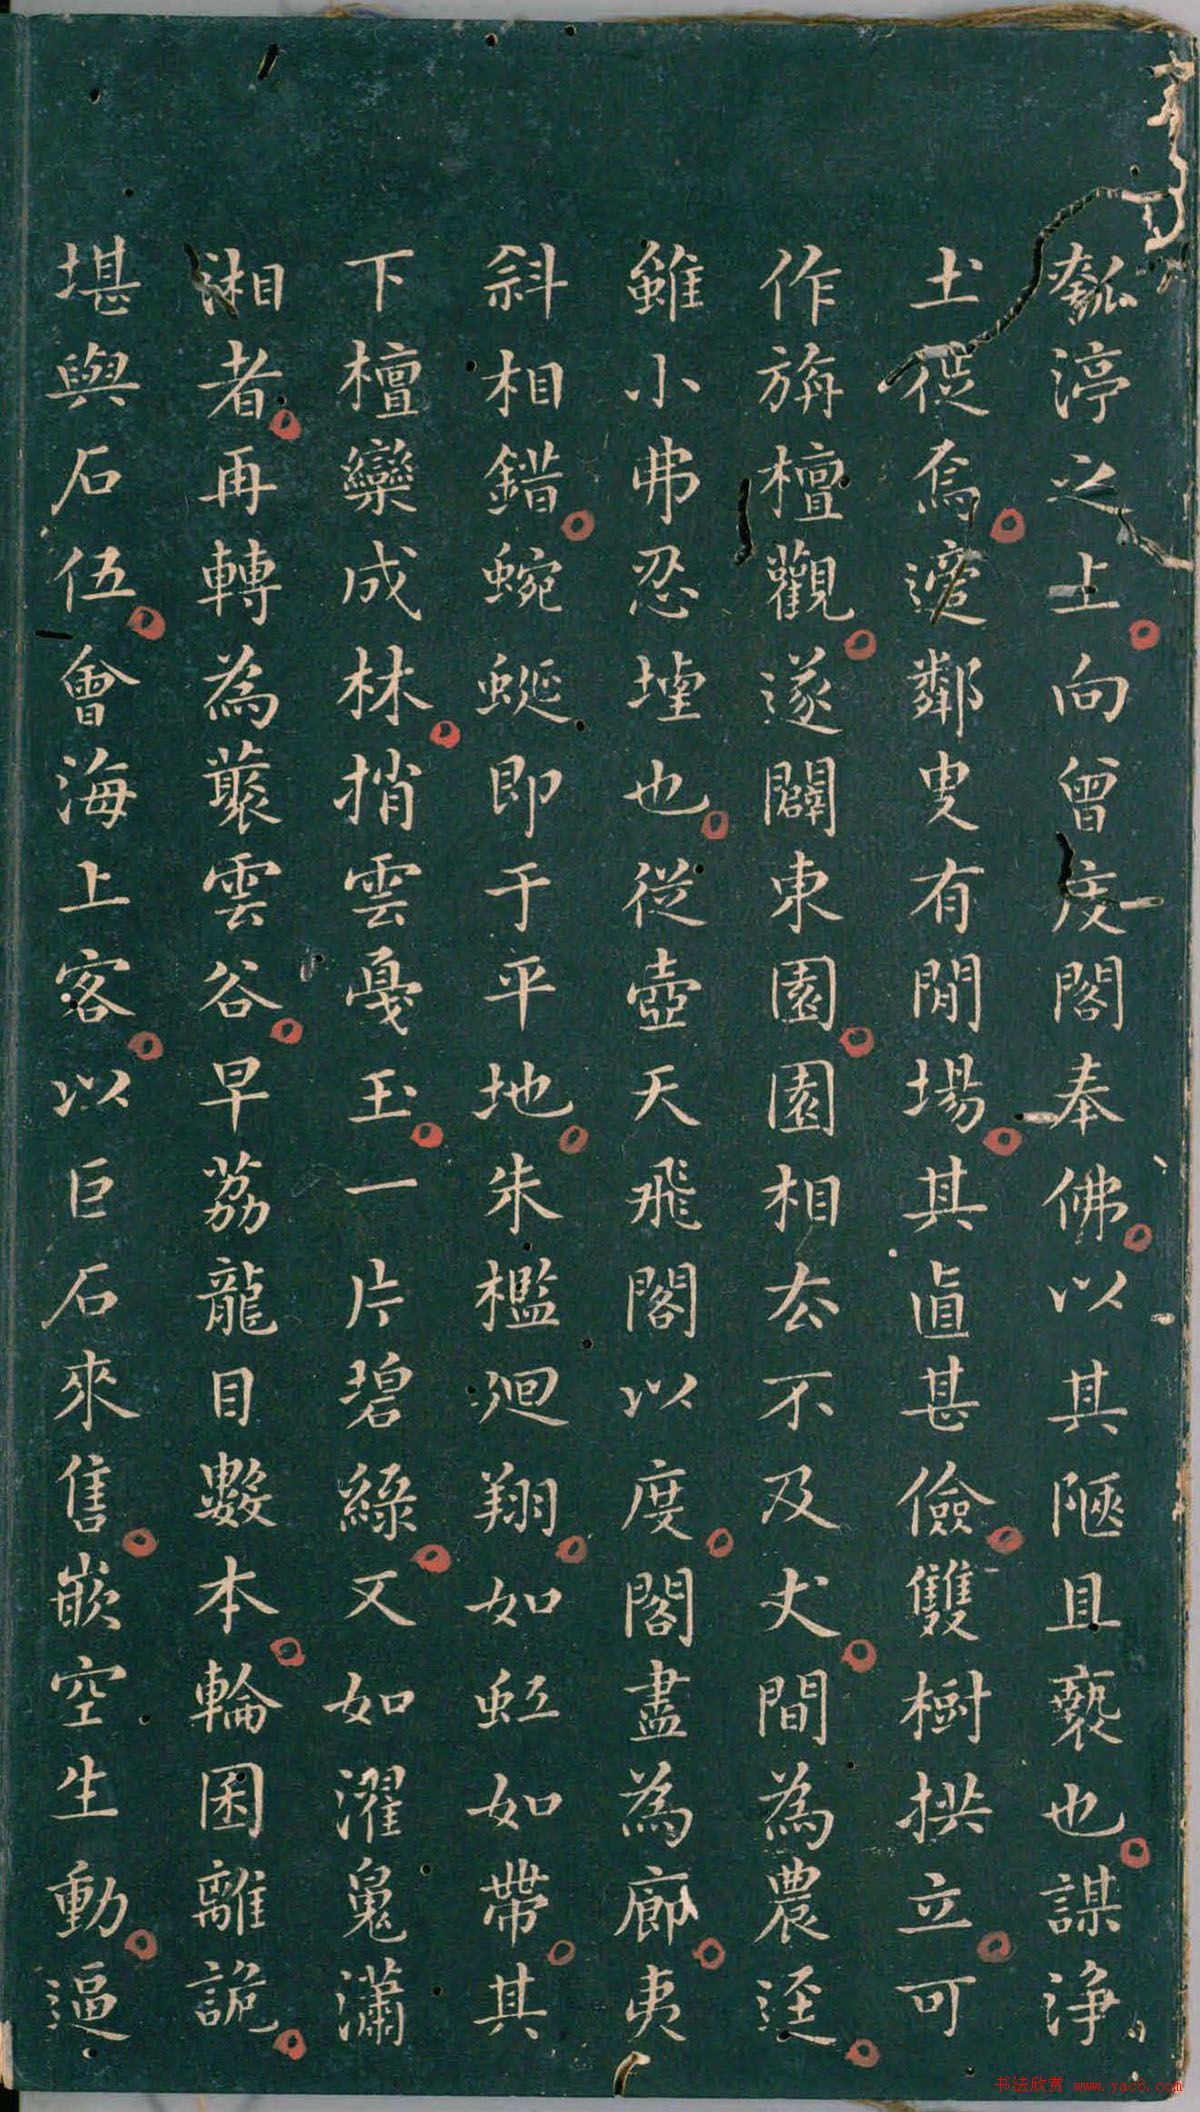 瓠渟之上向曾度閣奉佛以其陋且褻也謀淨
土徙焉適鄰叟有閒場其直甚儉雙樹拱立可
作旃檀觀遂闢東園園相去不及丈間為農逕
雖小弗忍堙也從壺天飛閣以度閣盡為廊夷
斜相錯蜿蜒即于平地朱檻迴翔如虹如帶其
下檀欒成林捎雲戛玉一片碧綠又如濯魂瀟
湘者再轉為叢雲谷早荔龍目數本輪囷離詭
堪與石伍會海上客以巨石來售嵌空生動逼
书法欣赏 www.yac8.com